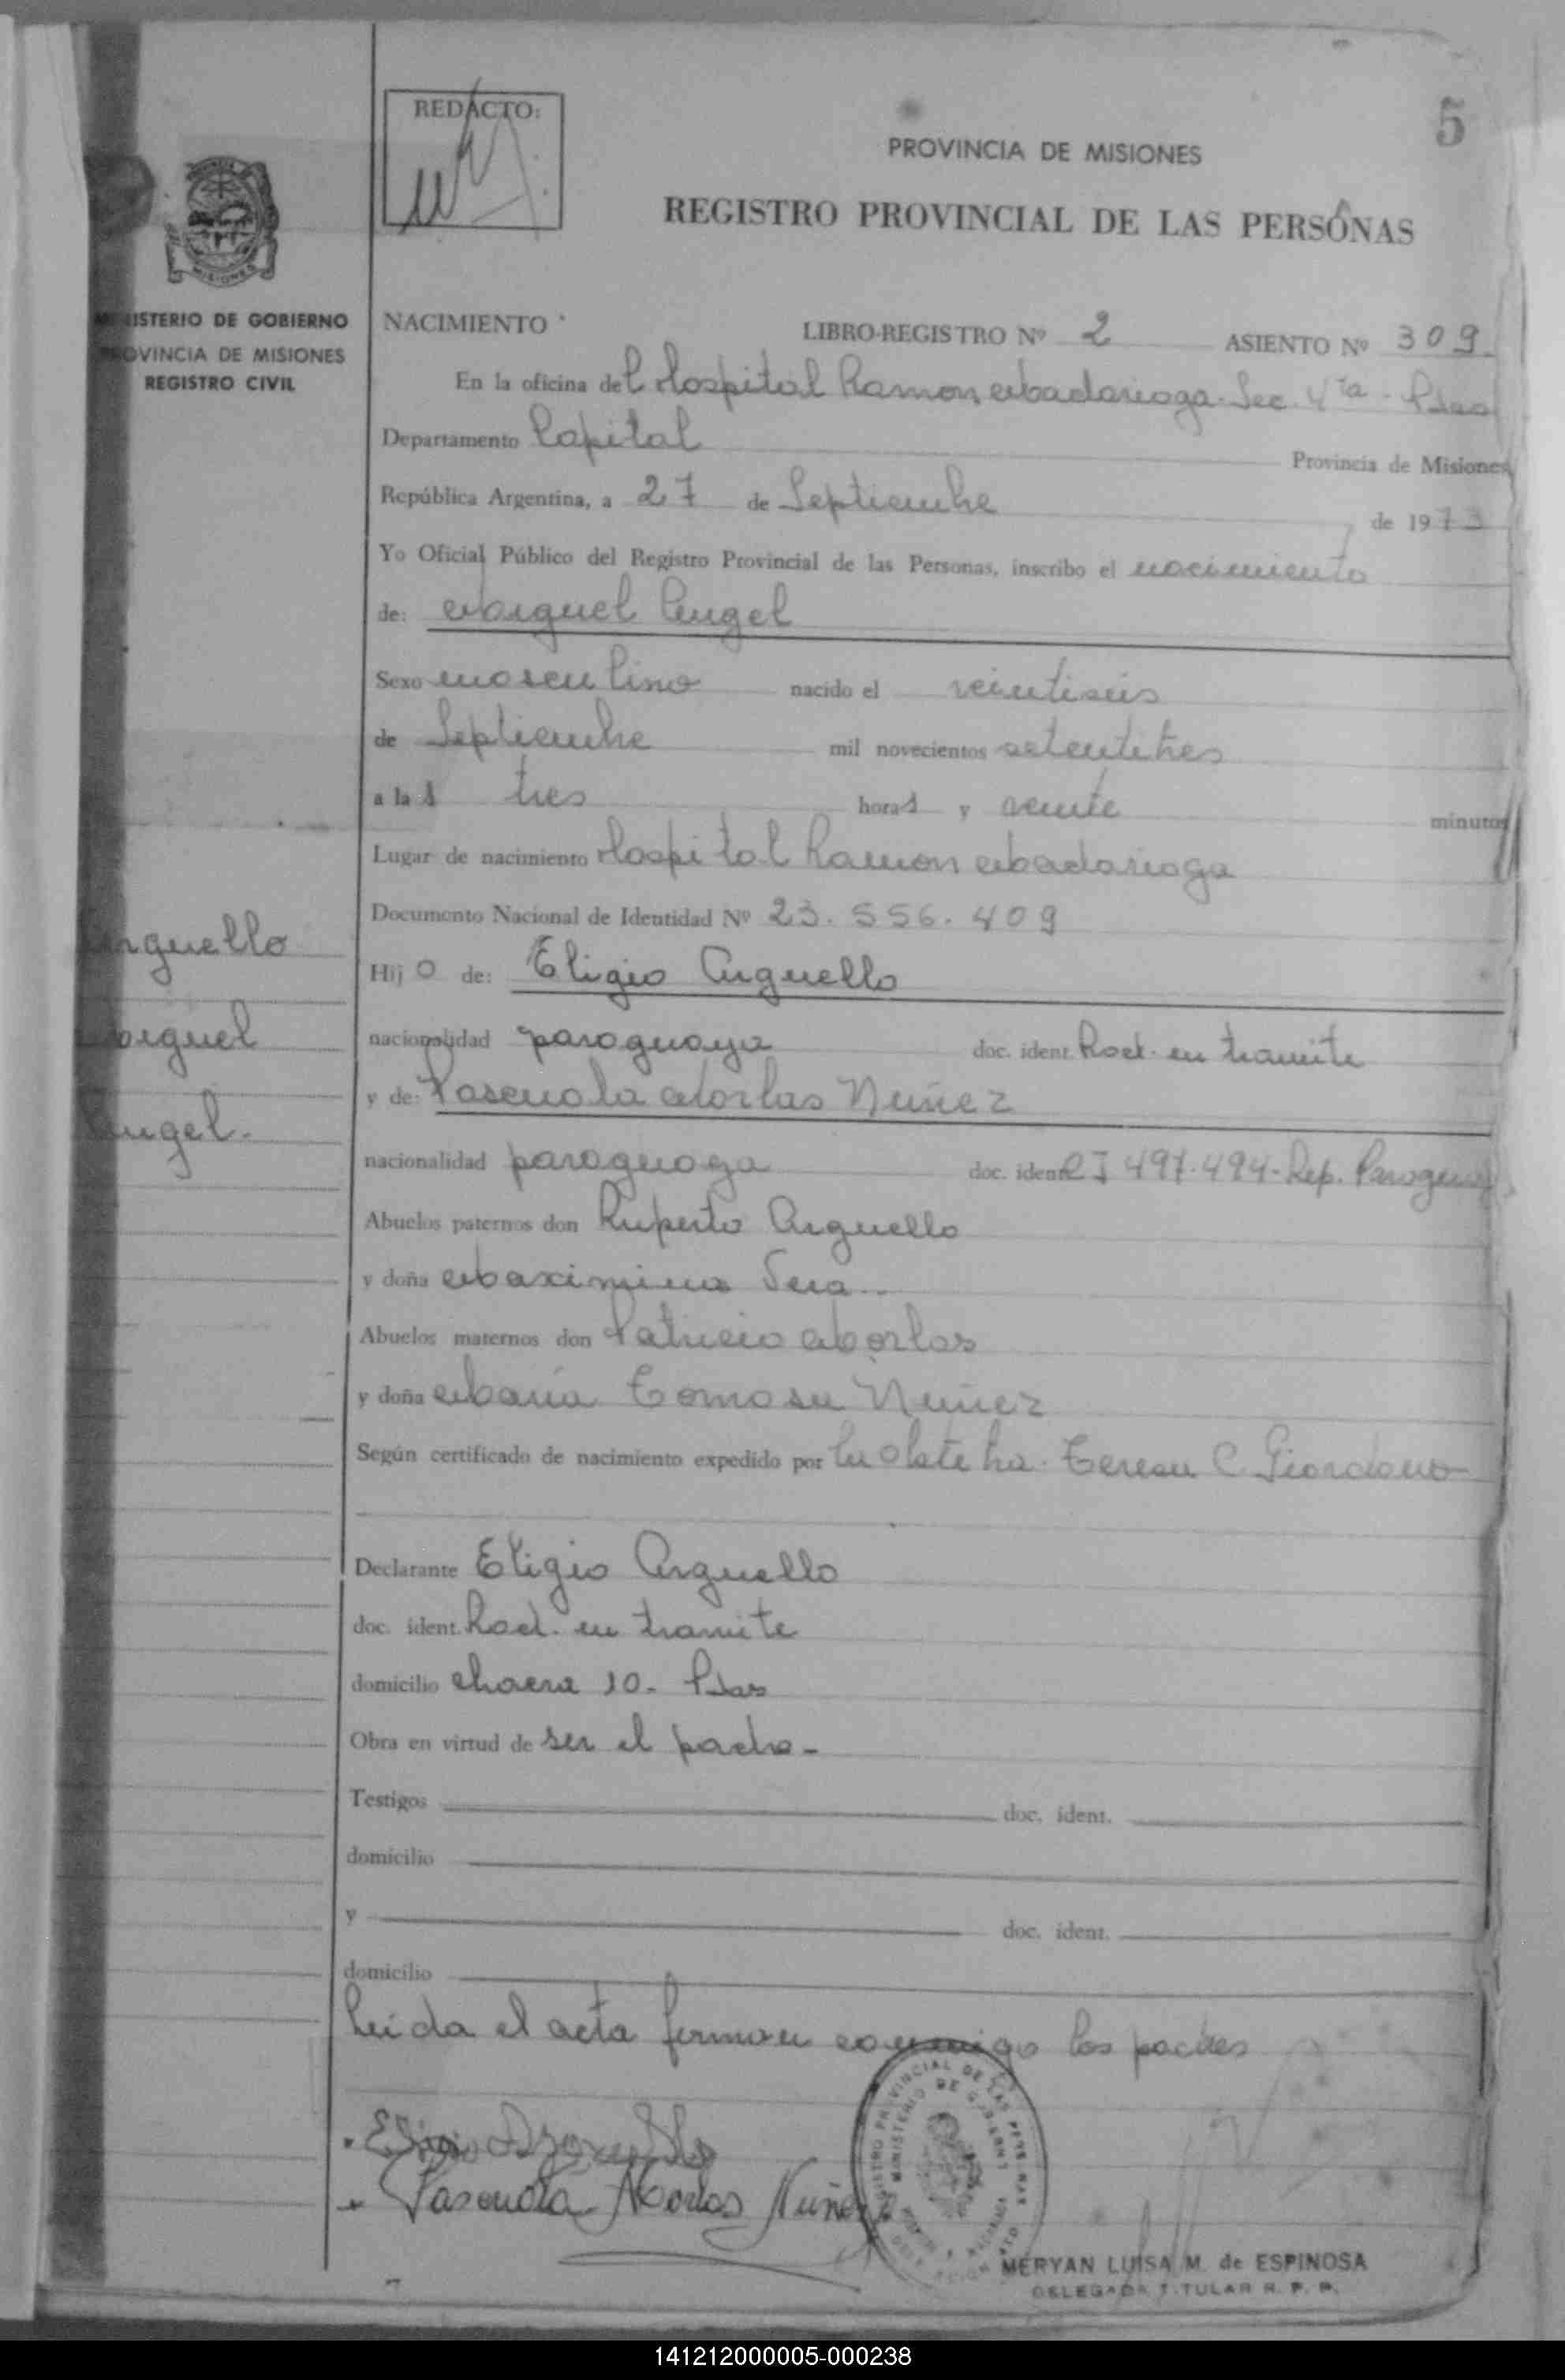 5
REDACTO:
PROVINCIA DE MISIONES
REGISTRO PROVINCIAL DE LAS PERSONAS
MISIONES
MINISTERIO DE GOBIERNO
PROVINCIA DE MISIONES
REGISTRO CIVIL
NACIMIENTO LIBRO-REGISTRO Nº 2 ASIENTO Nº 309
En la oficina del Hospital Ramon Madariaga - Sec. 4ta - Pdas
Departamento Capital Provincia de Misiones
República Argentina, a 27 de Septiembre de 1973
Yo Oficial Público del Registro Provincial de las Personas, inscribo el nacimiento
de: Miguel Angel
Sexo masculino nacido el veintiseis
de Septiembre mil novecientos setentitres
a las tres horas y veinte minutos
Lugar de nacimiento Hospital Ramon Madariaga
Documento Nacional de Identidad Nº 23.556.409
Arguello
Miguel
Angel.
Hijo de: Eligio Arguello
nacionalidad paraguaya doc. ident. Rad. en tramite
y de: Pascuala Morlas Nuñez
nacionalidad paraguaya doc. ident. CI 497.494 - Rep. Paraguay
Abuelos paternos don Ruperto Arguello
y doña Maximina Vera
Abuelos maternos don Patricio Morlas
y doña María Tomasa Nuñez
Según certificado de nacimiento expedido por la Obstetra. Teresa C. Giordano
Declarante Eligio Arguello
doc. ident. Rad. en tramite
domicilio chacra 10 - Pdas
Obra en virtud de ser el padre -
Testigos doc. ident.
domicilio
y doc. ident.
domicilio
Leida el acta firman conmigo los padres
Eligio Arguello
Pascuala Morlas Nuñez
REGISTRO PROVINCIAL DE LAS PERSONAS
MINISTERIO DE GOBIERNO
MERYAN LUISA M. de ESPINOSA
DELEGADA TITULAR R. P. P.
141212000005-000238